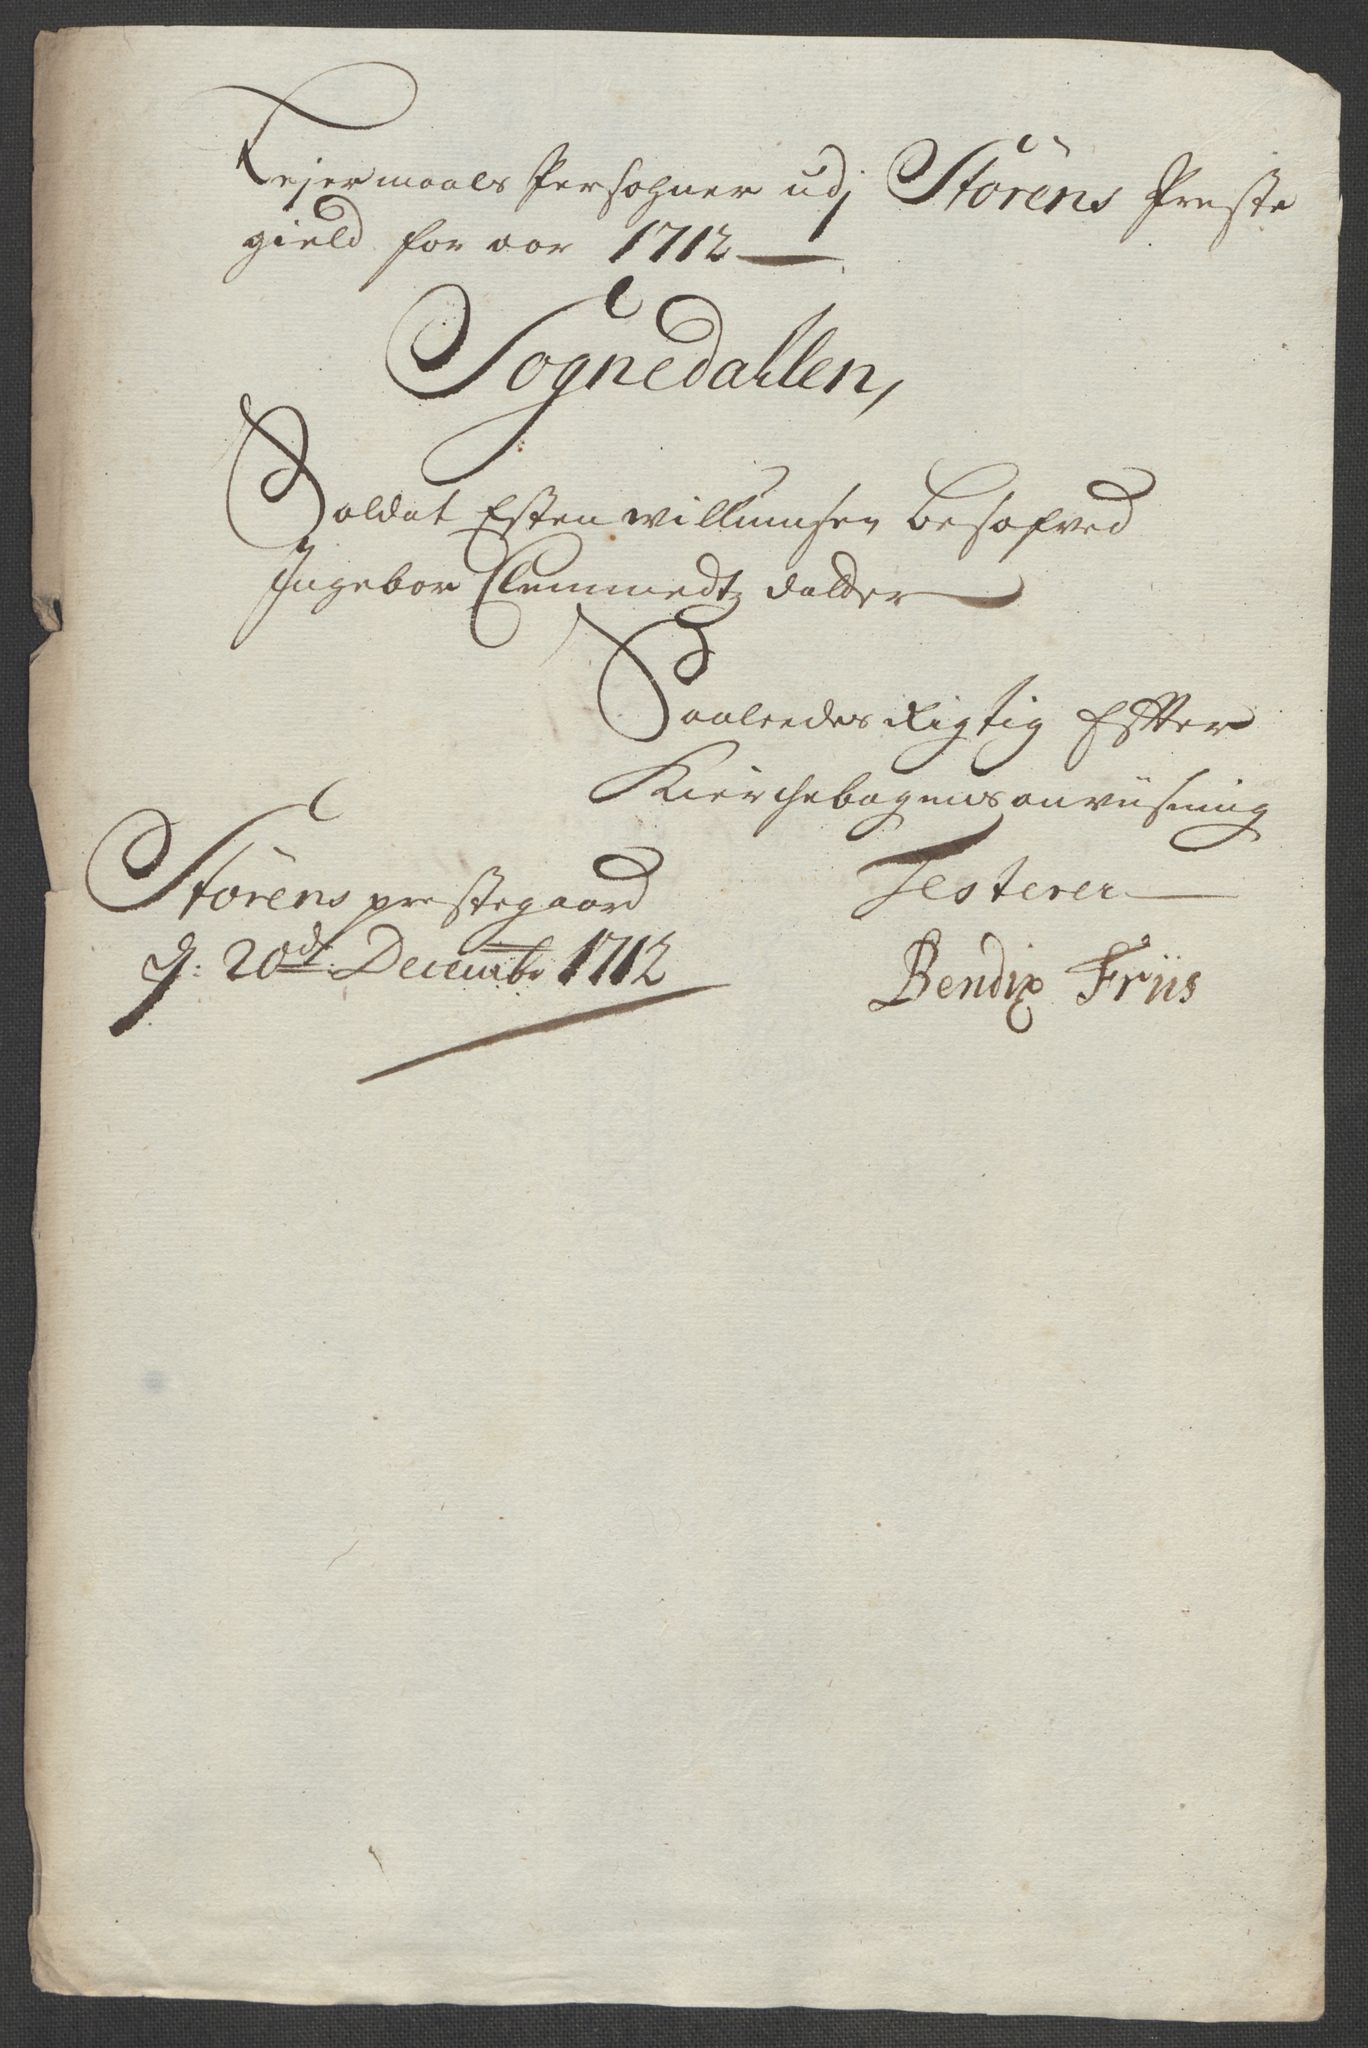 Lejermaals Persohner udj Störens Preste
gield for aar 1712
Sognedallen,
Soldat Esten willumsen besofved
Ingebor Clemmedtz datter
Saaleedes Rigtig Efter
Kierchebogens anviisning
Störens prestegaard
d: 20de Decembr 1712
Testerer
Bendix Friis